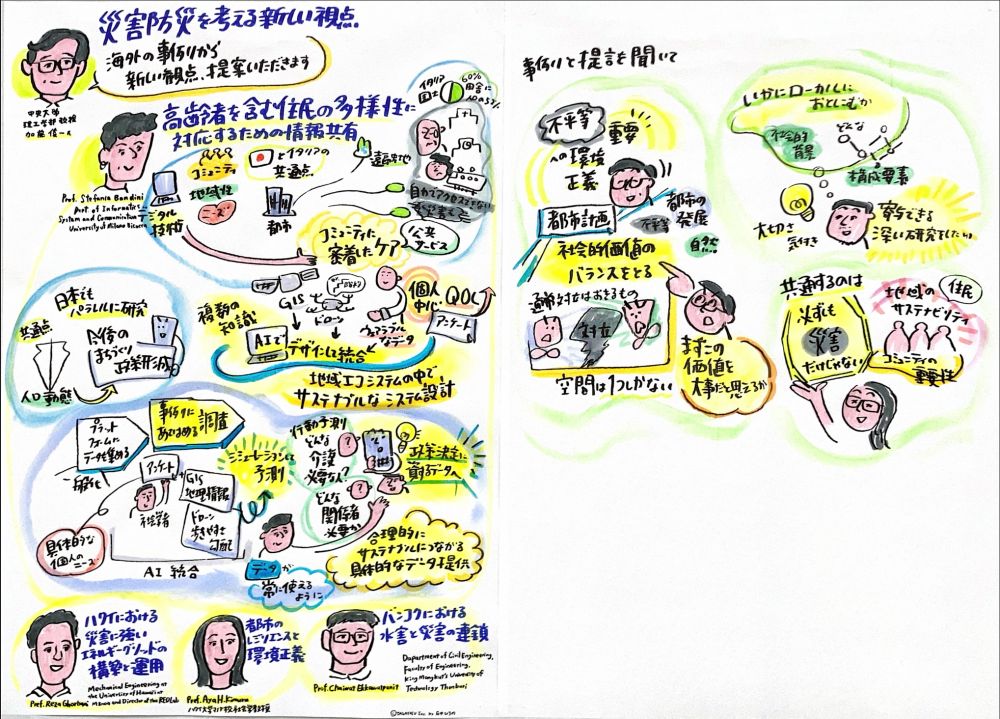 災害防災を考える新しい視点
海外の事例から
新しい観点、提案いただきます
中央大学
理工学部教授
高齢者を含む住民の多様性に
対応するための情報共有
Prof. Stefania Bandini
System and Communication
University of Milano Bicocca
デジタル
技術
コミュニティ
地域性
ニーズ
とイタリアの
共通点
都市
イタリア
国土
60%
自力でアクセスできない
公共
サービス
コミュニティに
密着したケア
GIS
ドローン
ウェアラブル
なデータ
個人
中心
QOL
アンケート
複数の
知識
AIで
デザインして統合
地域エコシステムの中で
サステナブルなシステム設計
日本でも
パラレルに研究
共通点
今後の
まちづくり
政策形成
人口動態
プラット
フォームに
データを集める
一般化
事例に
あてはめる調査
アンケート
社会学者
GIS
地理情報
ドローン
歩きやすさ
勾配
具体的な
個人のニーズ
AI 統合
シミュレーションして
予測
行動予測
どんな
介護
必要なん?
どんな
関係者
必要か
政策決定に
資するデータへ
合理的に
サステナブルにつながる
具体的なデータ提供
データが
常に使える
ように
ハワイにおける
災害に強い
エネルギーグリッドの
構築と運用
Mechanical Engineering at
the University of Hawai'i at
Manoa and Director of the REDLab
Prof. Reza Ghorbani
都市の
レジリエンスと
環境正義
Prof. Aya H. Kimura
ハワイ大学マノア校社会学部教授
バンコクにおける
水害と災害の連鎖
Department of Civil Engineering,
Faculty of Engineering,
King Mongkut's University of
Technology Thonburi
事例と提言を聞いて
不平等
重要
への環境
正義
都市計画
都市の
発展
不平等
社会的価値の
バランスをとる
通常対立はおきるもの
対立
空間は1つしかない
まずこの
価値を
大事だと思えるか
いかにローカルに
おとしこむか
社会的
背景
どんな
構成要素
大切さ
気付き
寄与できる
深い研究をしたい
共通するのは
必ずしも
災害
だけじゃない
地域の
サステナビリティ
住民
コミュニティの
重要性